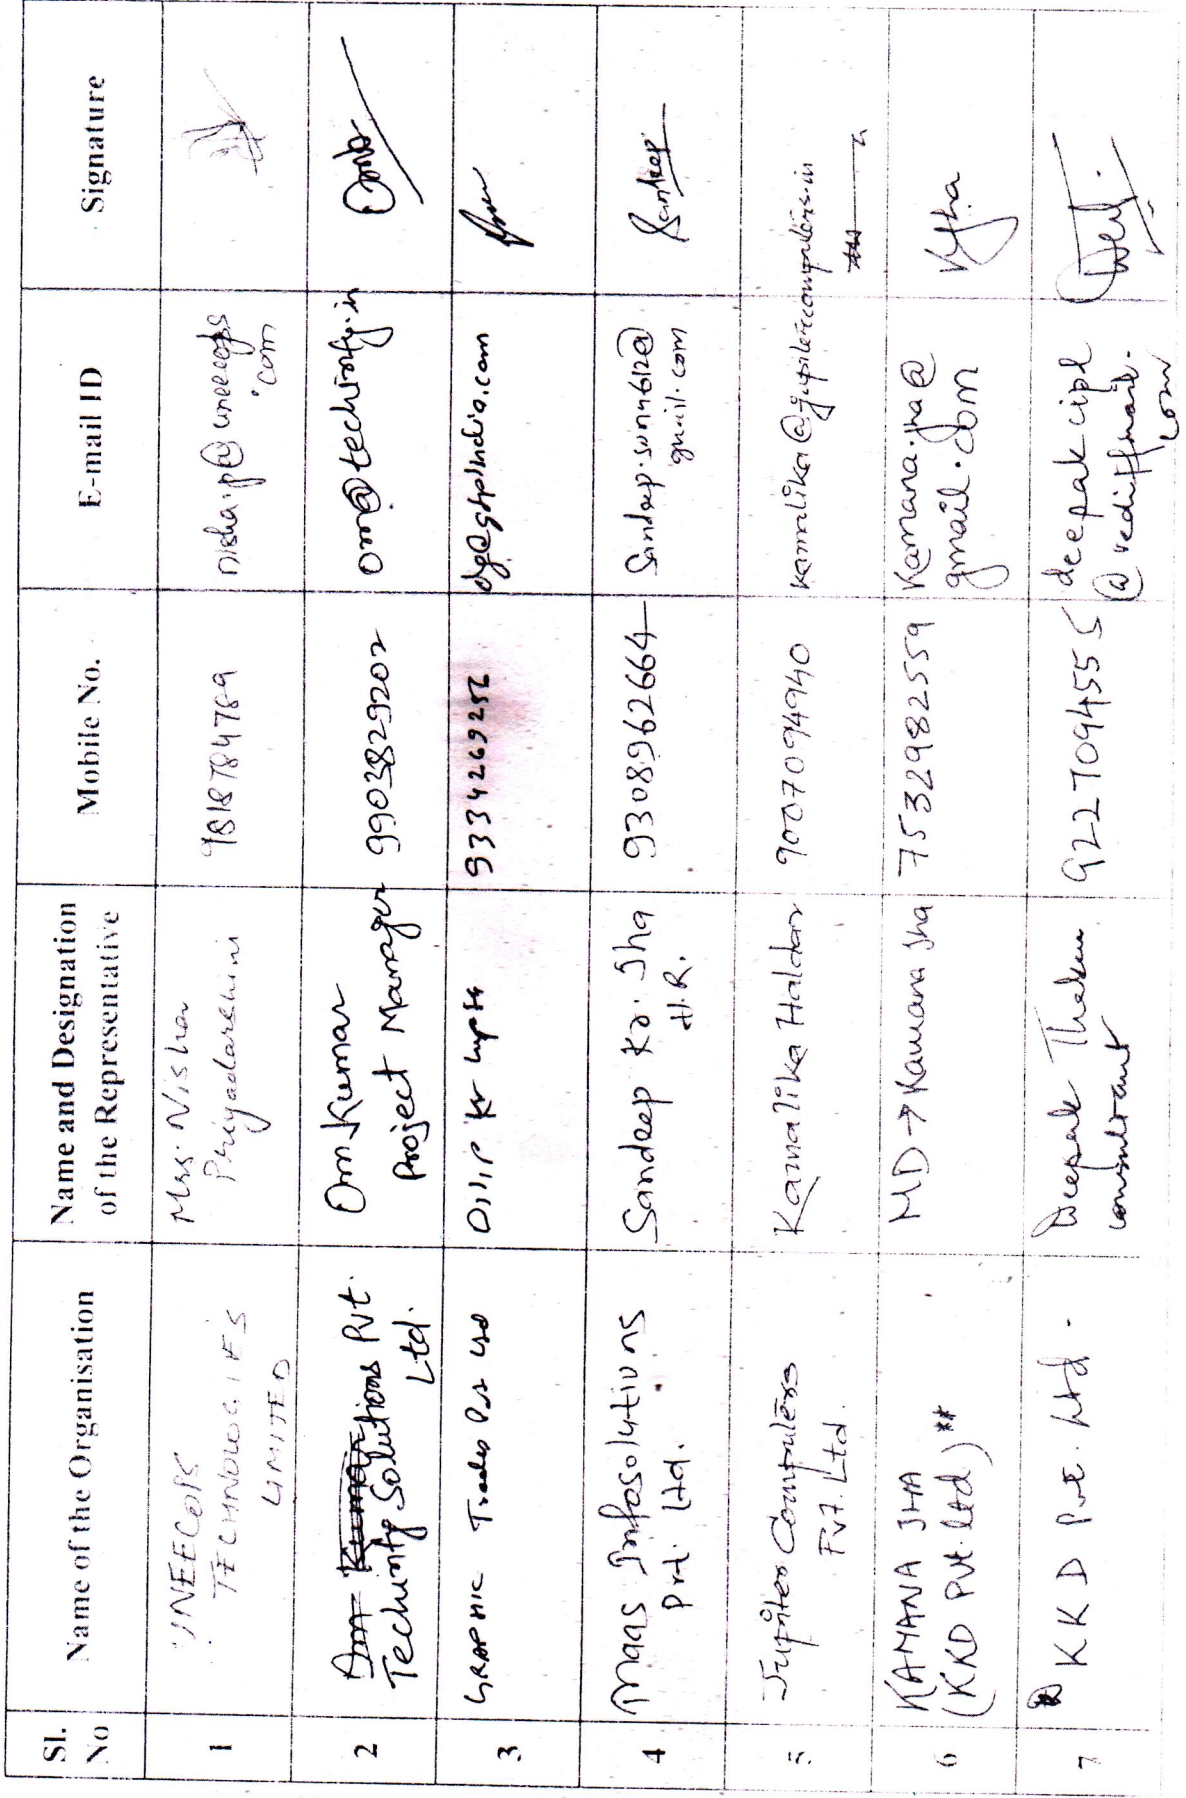 Sl. No
Name of the Organisation
Name and Designation of the Representative
Mobile No.
E-mail ID
Signature
1
UNEECOPS
TECHNOLOGIES
LIMITED
Mrs. Nisha
Priyadarshini
9818784789
nisha.p@uneecops
.com
2
Om Kumar
Techinfy Solutions Pvt.
Ltd.
Om Kumar
Project Manager
9903829202
om@techinfy.in
3
GRAPHIC Trades Pvt Ltd
Dilip Kr Gupta
9334269256
dg@gtplindia.com
4
Maas Infosolutions
Pvt. Ltd.
Sandeep Kr. Jha
H.R.
9308962664
Sandeep.sunny612@
gmail.com
Sandeep
5
Jupiter Computers
Pvt. Ltd.
Kamalika Haldar
9007094940
kamalika@jupitercomputers.in
6
KAMANA JHA
(KKD Pvt. Ltd)**
MD→Kamana Jha
7532982559
Kamana.jha@
gmail.com
KJha
7
KKD Pvt. Ltd.
Deepak Thakur
consultant
9227094555
deepakcipl
@rediffmail.
com